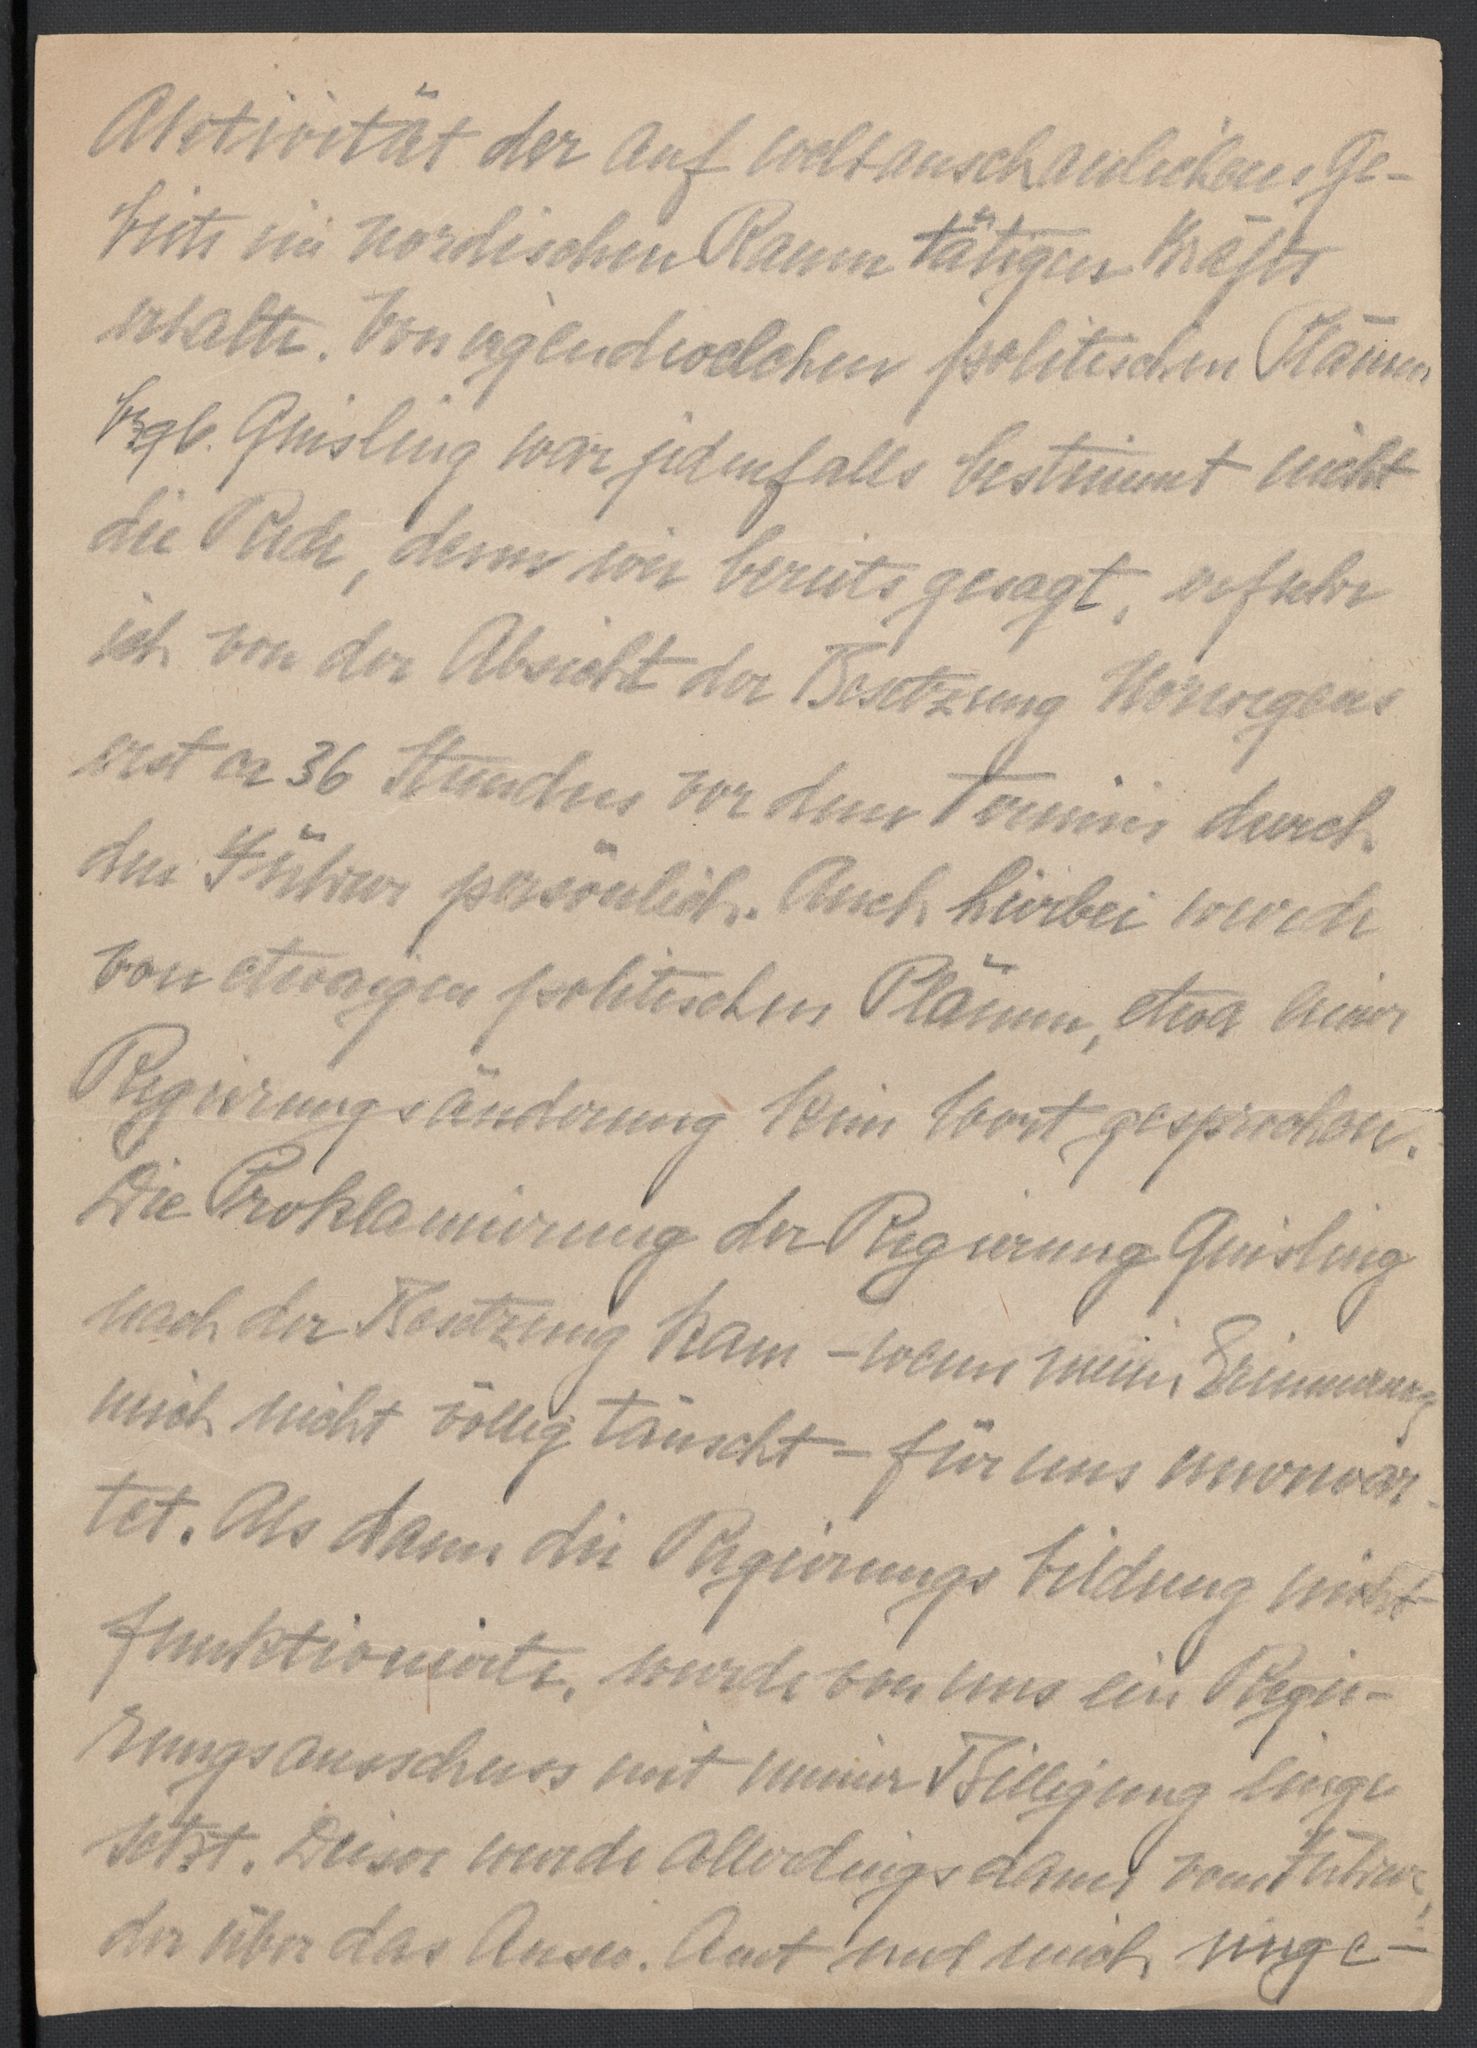 Aktivität der auf weltanschaulichem Ge-
biete im nordischen Raum tätigen Kräfte
erhalte. Von irgendwelchen politischen Plänen
bzgl. Quisling war jedenfalls bestimmt nicht
die Rede, denn wie bereits gesagt, erfuhr
ich von der Absicht der Besetzung Norwegens
erst ca 36 Stunden vor dem Termin durch
den Führer persönlich. Auch hierbei wurde
von etwaigen politischen Plänen, etwa einer
Regierungsänderung kein Wort gesprochen.
Die Proklamierung der Regierung Quisling
nach der Besetzung kam – wenn meine Erinnerung
mich nicht völlig täuscht – für uns unerwar-
tet. Als dann die Regierungsbildung nicht
funktionierte, wurde von uns ein Regie-
rungsausschuss mit meiner Billigung einge
setzt. Dieser wurde allerdings dann vom Führer,
der über das Ausw. Amt und mich unge-